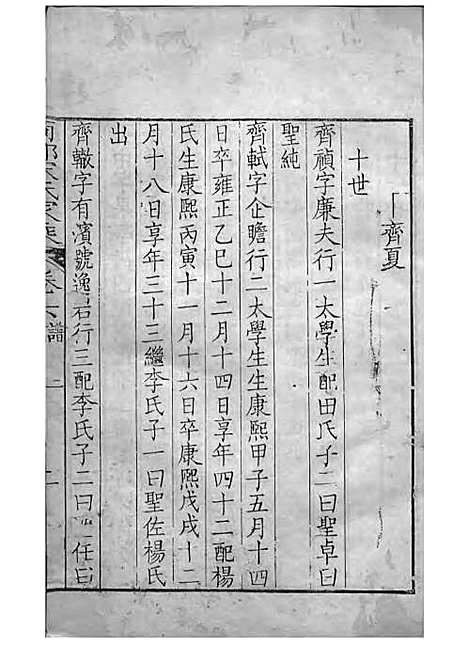 齊夏
十世
齊禎字廉夫行一太學生配田氏子二曰聖卓曰
聖純
齊軾字企瞻行二太學生生康熙甲子五月十四
日卒雍正乙巳十二月十四日享年四十二配楊
氏生康熙丙寅十一月十六日卒康熙戊戌十二
月十八日享年三十三繼李氏子一曰聖佐楊氏
出
齊轍字有濱號逸岩行三配李氏子二曰任曰
氏家乘 卷六 譜